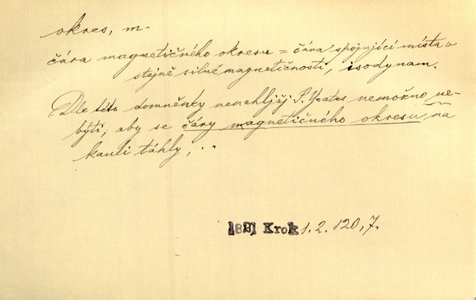 okres, m.
čára magnetičného okresu = čára spojující místa o
stejně silné magnetičnosti, isodynam.
Dle této domněnky nenahlíží P. Yeates nemožno ne-
býti, aby se čáry magnetičného okresu na
kouli táhly, ..
Krok 1. 2. 120, 7.